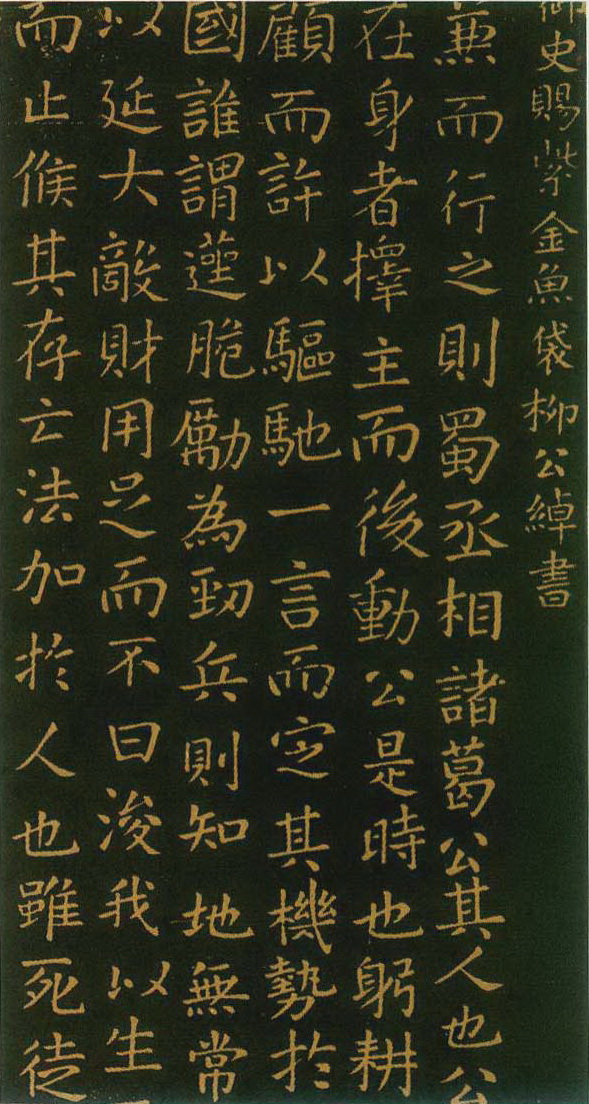 御史賜紫金魚袋柳公綽書
兼而行之則蜀丞相諸葛公其人也公
在身者擇主而後動公是時也躬耕
顧而許以驅馳一言而定其機勢於
國誰謂脆勵為勁兵則知地無常
以延大敵財用足而不曰浚我以生
而止候其存亡法加於人也雖死徒